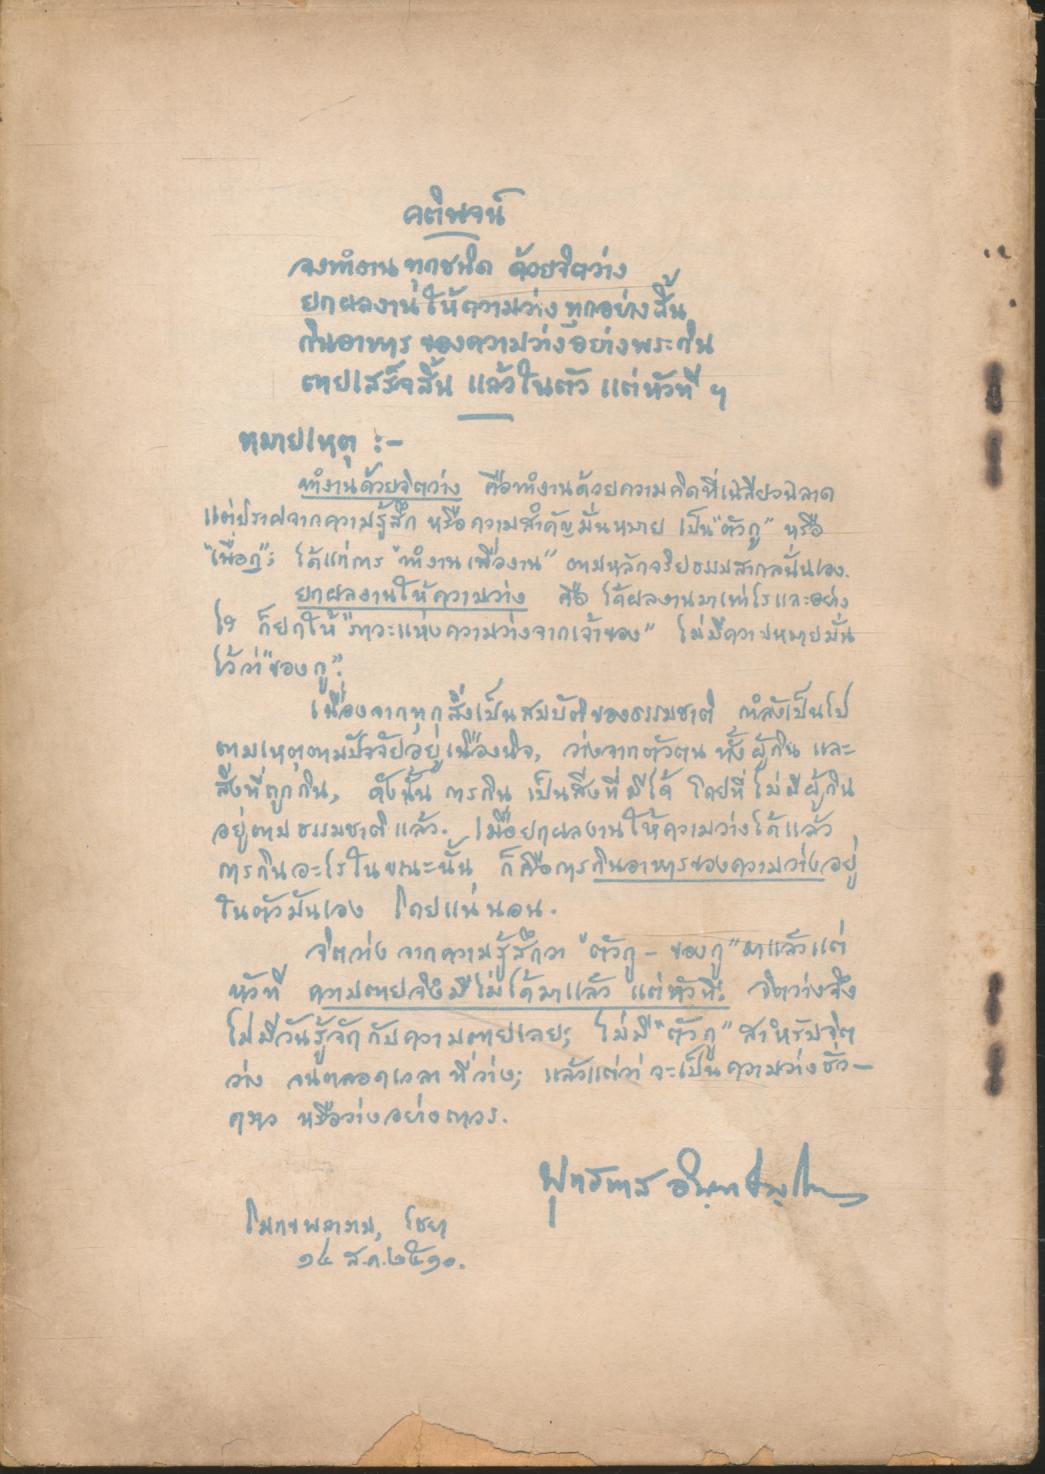 คติพจน์
จงทำงาน ทุกชนิด ด้วยจิตว่าง
ยกผลงาน ให้ความว่าง ทุกอย่างสิ้น
กินอาหาร ของความว่าง อย่างพระกิน
ตายเสร็จสิ้น แล้วในตัว แต่หัวที ฯ
หมายเหตุ :-
ทำงานด้วยจิตว่าง คือทำงานด้วยความคิดที่เฉลียวฉลาด
แต่ปราศจากความรู้สึก หรือความสำคัญมั่นหมาย เป็น "ตัวกู" หรือ
"เพื่อกู"; ได้แก่การ "ทำงานเพื่องาน" ตามหลักจริยธรรมสากลนั่นเอง.
ยกผลงานให้ความว่าง คือ ได้ผลงานมาเท่าไรและอย่าง
ไร ก็ยกให้ "ภาวะแห่งความว่างจากเจ้าของ" ไม่มีความหมายมั่น
ไว้ว่า "ของกู".
เนื่องจากทุกสิ่งเป็นสมบัติของธรรมชาติ กำลังเป็นไป
ตามเหตุตามปัจจัยอยู่เนืองนิจ, ว่างจากตัวตน ทั้งผู้กิน และ
สิ่งที่ถูกกิน, ดังนั้น การกิน เป็นสิ่งที่มีได้ โดยที่ไม่มีผู้กิน
อยู่ตามธรรมชาติแล้ว. เมื่อยกผลงานให้ความว่างได้แล้ว
การกินอะไรในขณะนั้น ก็คือการกินอาหารของความว่างอยู่
ในตัวมันเอง โดยแน่นอน.
จิตว่าง จากความรู้สึกว่า "ตัวกู - ของกู" มาแล้วแต่
หัวที ความตายจึงมีไม่ได้มาแล้ว แต่หัวที; จิตว่างจึง
ไม่มีวันรู้จักกับความตายเลย; ไม่มี "ตัวกู" สำหรับจิต
ว่าง จนตลอดเวลาที่ว่าง; แล้วแต่ว่าจะเป็นความว่างชั่ว-
คราว หรือว่างอย่างถาวร.
พุทธทาส อินทปัญโญ
โมกขพลาราม, ไชยา
๑๔ ส.ค. ๒๕๑๐.